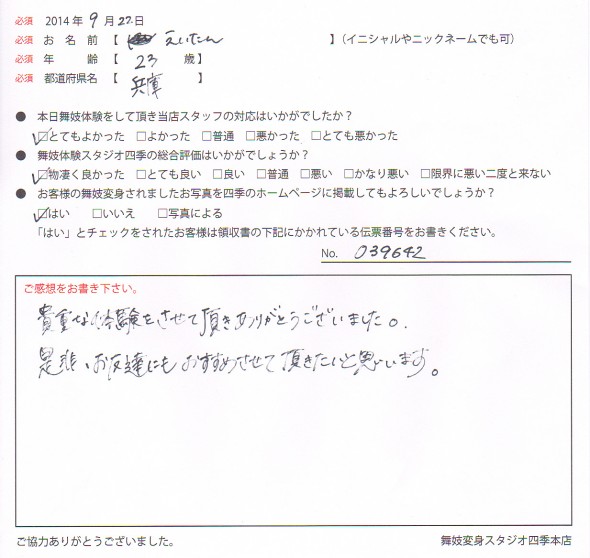 必須 2014年 9月 22日
必須 お名前【 えいたん 】(イニシャルやニックネームでも可)
必須 年齢【 23 歳】
必須 都道府県名【 兵庫 】
● 本日舞妓体験をして頂き当店スタッフの対応はいかがでしたか？
☑とてもよかった □よかった □普通 □悪かった □とても悪かった
● 舞妓体験スタジオ四季の総合評価はいかがでしょうか？
☑物凄く良かった □とても良い □良い □普通 □悪い □かなり悪い □限界に悪い二度と来ない
● お客様の舞妓変身されましたお写真を四季のホームページに掲載してもよろしいでしょうか？
☑はい □いいえ □写真による
「はい」とチェックをされたお客様は領収書の下記にかかれている伝票番号をお書きください。
No. 039642
ご感想をお書き下さい。
貴重な体験をさせて頂きありがとうございました。
是非、お友達にもおすすめさせて頂きたいと思います。
ご協力ありがとうございました。 舞妓変身スタジオ四季本店